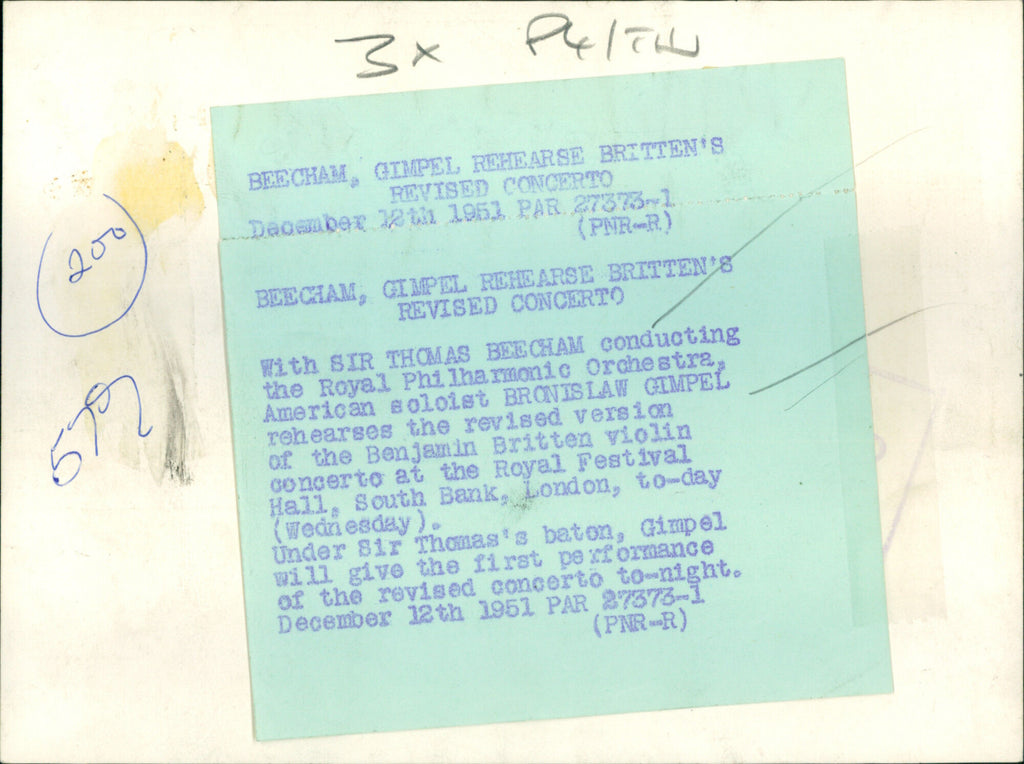 3x P4/TW
BEECHAM, GIMPEL REHEARSE BRITTEN'S
REVISED CONCERTO
December 12th 1951 PAR 27373-1
(PNR-R)
BEECHAM, GIMPEL REHEARSE BRITTEN'S
REVISED CONCERTO
With SIR THOMAS BEECHAM conducting
the Royal Philharmonic Orchestra,
American soloist BRONISLAW GIMPEL
rehearses the revised version
of the Benjamin Britten violin
concerto at the Royal Festival
Hall, South Bank, London, to-day
(Wednesday).
Under Sir Thomas's baton, Gimpel
will give the first performance
of the revised concerto to-night.
December 12th 1951 PAR 27373-1
(PNR-R)
200